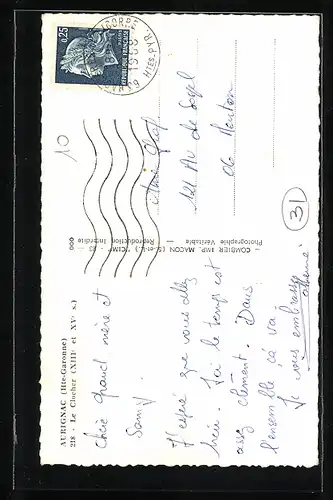 AURIGNAC (Hte-Garonne)
218 - Le Clocher (XIIIe et XVe s.)
Chère grand mère et
Samy.
J'espère que vous allez
bien. Ici le temps est
assez clément. Dans
l'ensemble ça va.
Je vous embrasse
COMBIER IMP. MACON (S.-et-L.) "CIM"
Photographie Véritable - Reproduction Interdite
0,25
REPUBLIQUE FRANÇAISE
HTES PYR.
121 Av de Sospel
06 Menton
10
31